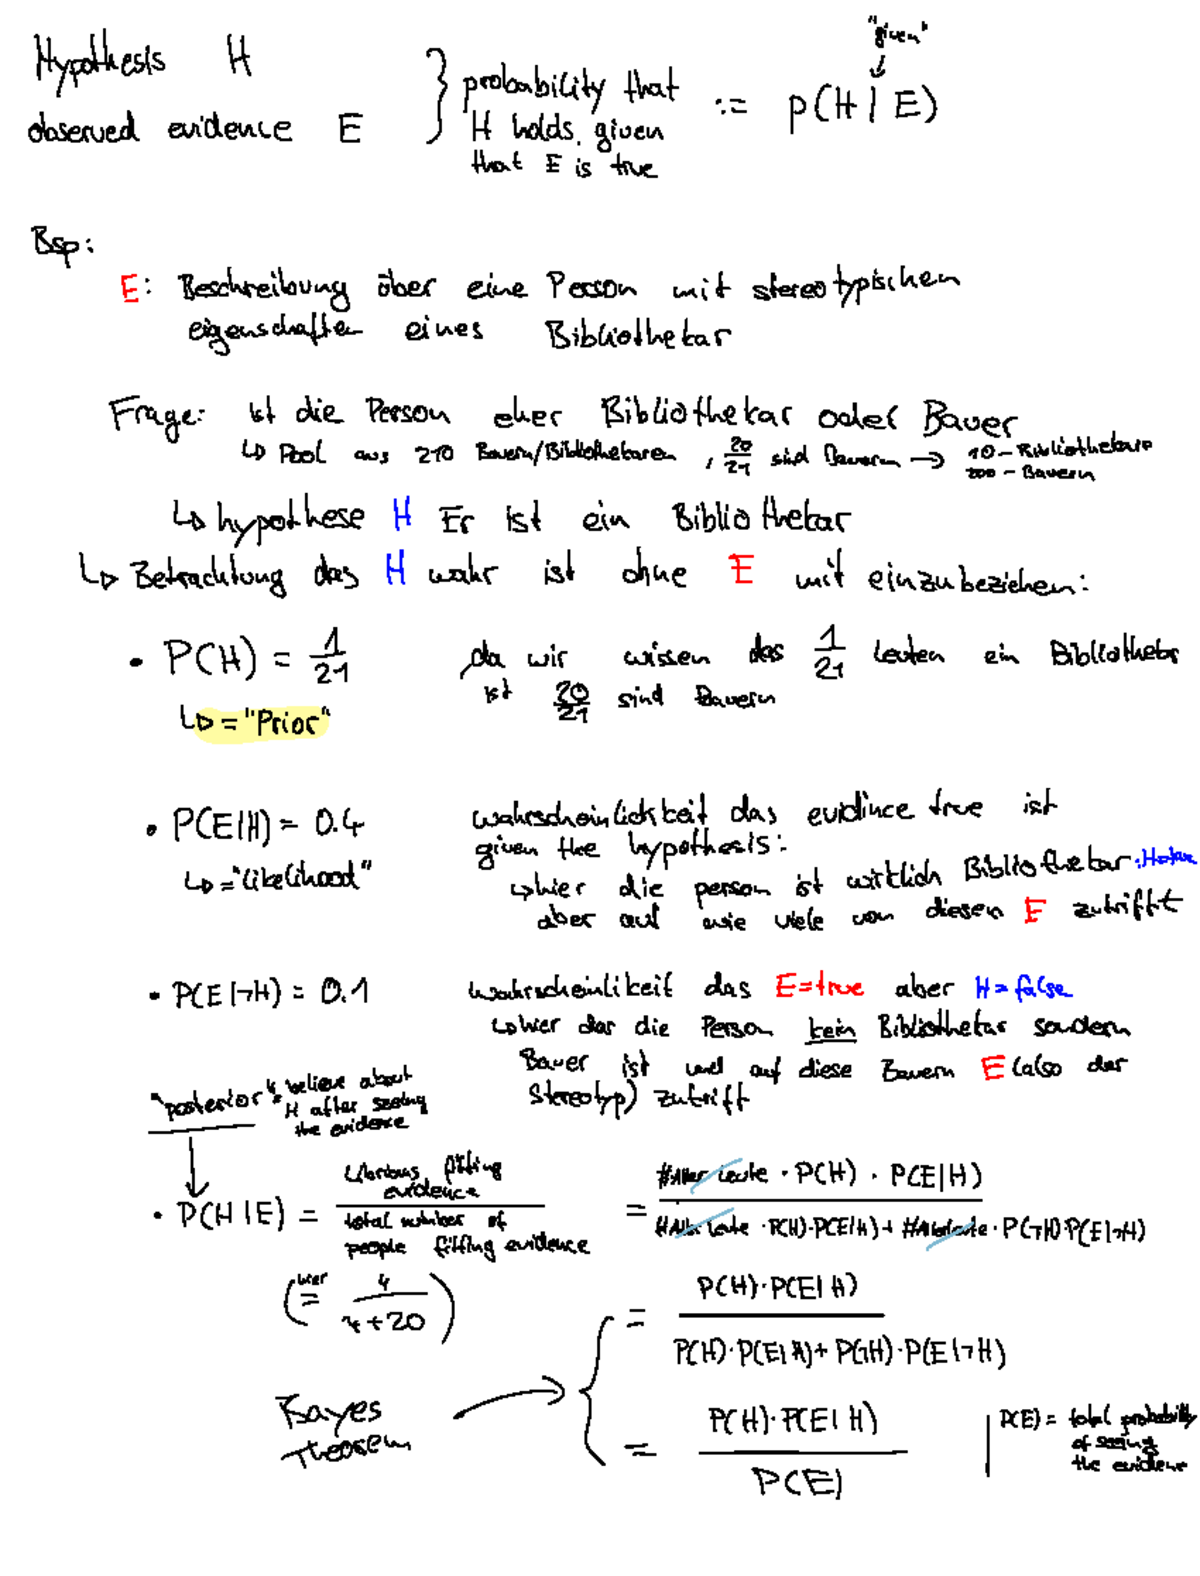 "given"
Hypothesis H
observed evidence E
probability that
H holds, given
that E is true
:= p(H | E)
Bsp:
E: Beschreibung über eine Person mit stereotypischen
eigenschaften eines Bibliothekar
Frage: ist die Person eher Bibliothekar oder Bauer
↳ Pool aus 210 Bauern/Bibliothekaren, 20/21 sind Bauern → 10 - Bibliothekare
200 - Bauern
↳ hypothese H Er ist ein Bibliothekar
↳ Betrachtung das H wahr ist ohne E mit einzubeziehen:
• P(H) = 1/21 da wir wissen das 1/21 Leuten ein Bibliothekar
ist 20/21 sind Bauern
↳ = "Prior"
• P(E|H) = 0.4
↳ = "likelihood"
wahrscheinlichkeit das evidince true ist
given the hypothesis:
↳ hier die person ist wirklich Bibliothekar: H=true
aber auf wie viele von diesen E zutrifft
• P(E|¬H) = 0.1
wahrscheinlikeit das E=true aber H=false
↳ hier das die Person kein Bibliothekar sondern
Bauer ist und auf diese Bauern E (also der
Stereotyp) zutrifft
"posterior": believe about
H after seeing
the evidence
• P(H|E) = librarians fitting evidence / total number of people fitting evidence
= #Aller Leute · P(H) · P(E|H) / #Aller Leute · P(H)·P(E|H) + #Allerleute · P(¬H)·P(E|¬H)
(hier = 4 / 4+20)
= P(H)·P(E|H) / P(H)·P(E|H) + P(¬H)·P(E|¬H)
Bayes
Theorem
= P(H)·P(E|H) / P(E)
P(E) = total probability
of seeing
the evidence